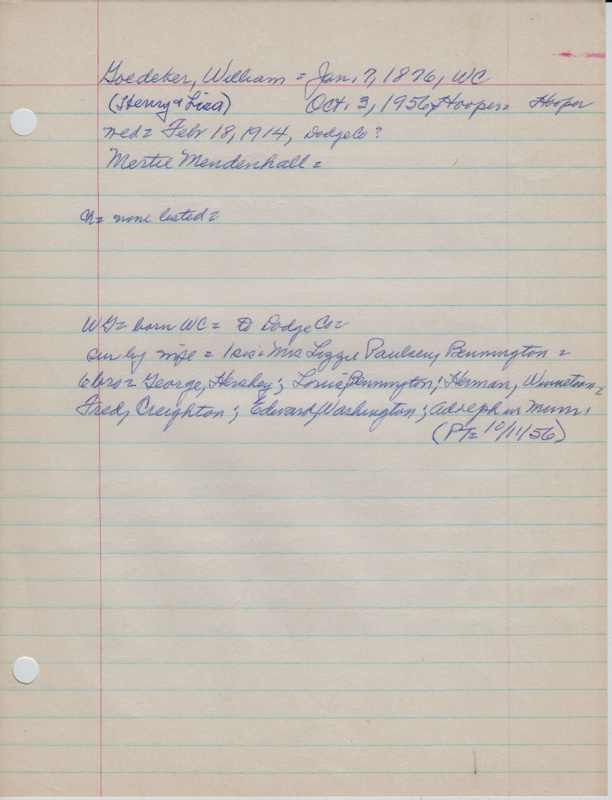 Goedeker, William = Jan. 7, 1876, WC
(Henry & Liza) Oct. 3, 1956, Hooper= Hooper
med= Febr 18, 1914, Dodge Co?
Mertie Mendenhall=
Ch= none listed=
WG= born WC= to Dodge Co=
sur by wife = 1 sis= Mrs Lizzie Paulsen, Bennington =
6 bro = George, Hershey; Louie, Bennington; Herman, Winnetoon;
Fred, Creighton; Edward, Washington; Adolph in Minn.
(PT= 10/11/56)